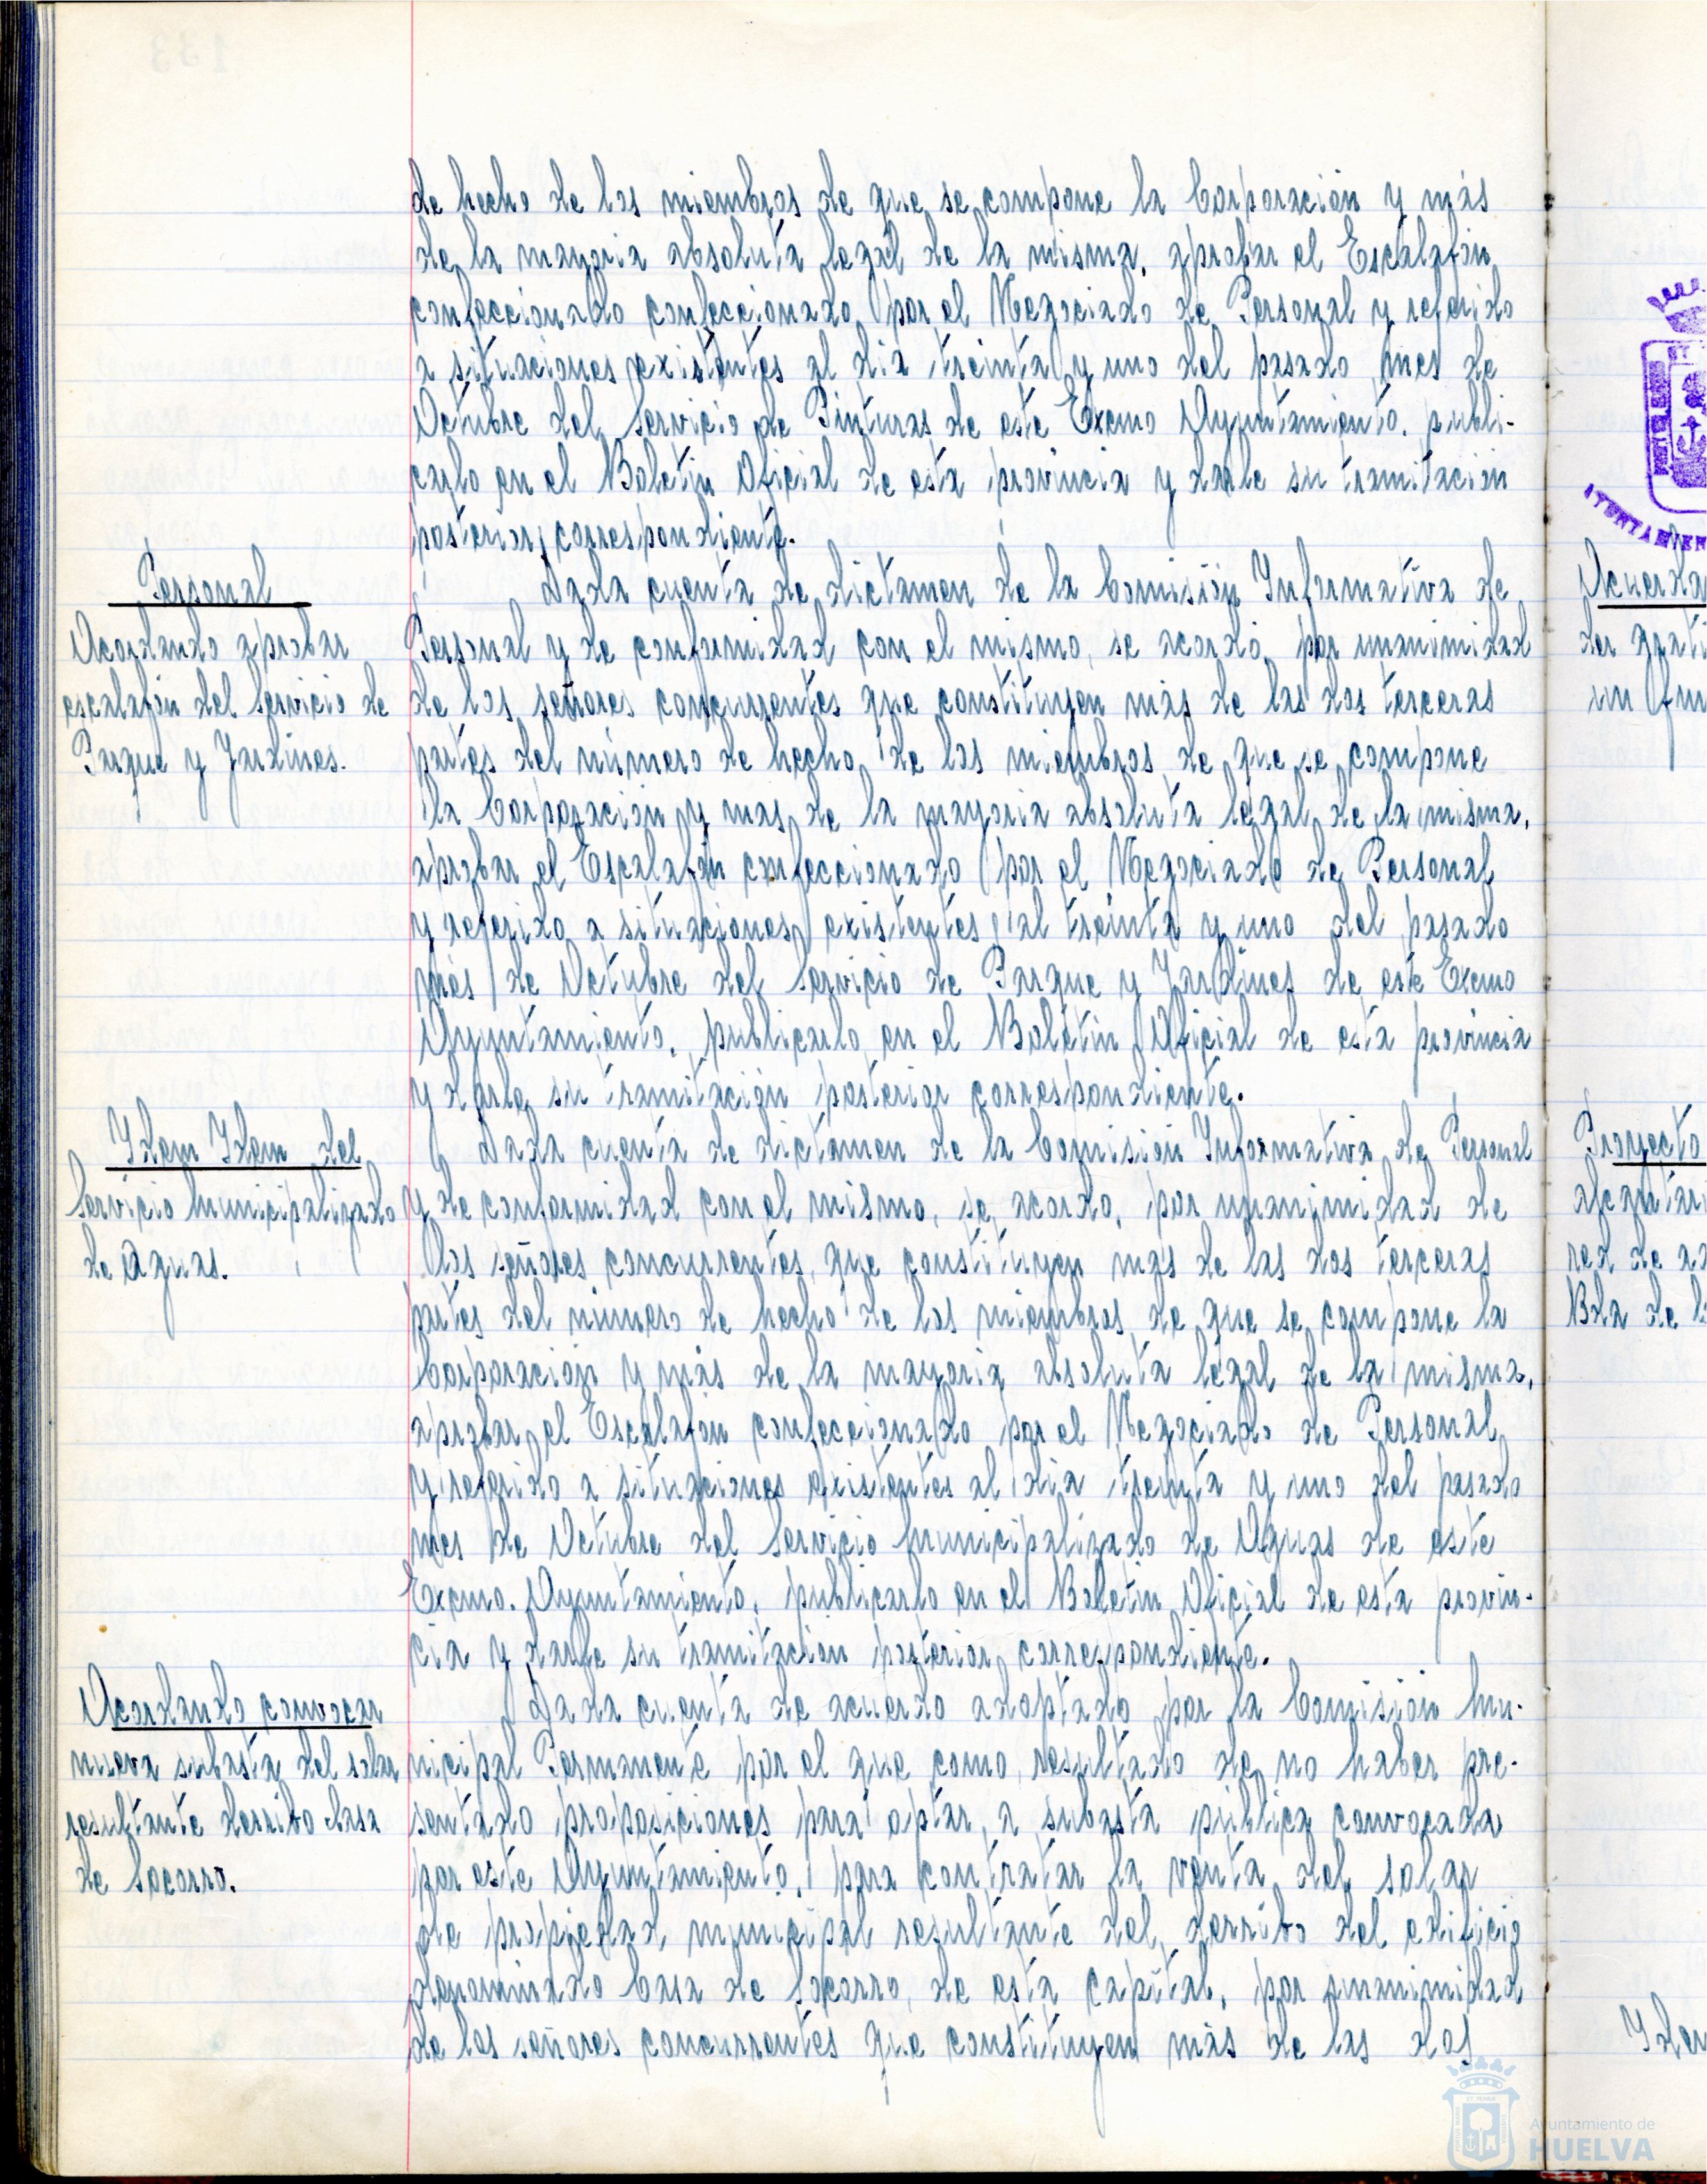 de hecho de los miembros de que se compone la Corporación y más
de la mayoria absoluta legal de la misma, aprobar el Escalafón
confeccionado confeccionado por el Negociado de Personal y referido
a situaciones existentes al dia treinta y uno del pasado mes de
Octubre del Servicio de Pinturas de este Excmo Ayuntamiento, publi-
carlo en el Boletin Oficial de esta provincia y darle su tramitación
posterior correspondiente.
Personal
Acordando aprobar
escalafón del Servicio de
Parque y Jardines.
Dada cuenta de dictamen de la Comisión Informativa de
Personal y de conformidad con el mismo, se acordó, por unanimidad
de los señores concurrentes que constituyen más de las dos terceras
partes del número de hecho de los miembros de que se compone
la Corporación y mas de la mayoria absoluta legal de la misma,
aprobar el Escalafón confeccionado por el Negociado de Personal
y referido a situaciones existentes al treinta y uno del pasado
més de Octubre del Servicio de Parque y Jardines de este Excmo
Ayuntamiento, publicarlo en el Boletin Oficial de esta provincia
y darle su tramitación posterior correspondiente.
Idem Idem del
Servicio Municipalizado
de Aguas.
Dada cuenta de dictamen de la Comisión Informativa de Personal
y de conformidad con el mismo, se acordo, por unanimidad de
los señores concurrentes, que constituyen mas de las dos terceras
partes del número de hecho de los miembros de que se compone la
Corporación y más de la mayoria absoluta legal de la misma,
aprobar el Escalafón confeccionado por el Negociado de Personal
y referido a situaciones existentes al dia treinta y uno del pasado
mes de Octubre del Servicio Municipalizado de Aguas de este
Excmo. Ayuntamiento, publicarlo en el Boletin Oficial de esta provin-
cia y darle su tramitacion posterior correspondiente.
Acordando convocar
nueva subasta del solar
resultante derribo Casa
de Socorro.
Dada cuenta de acuerdo adoptado por la Comisión Mu-
nicipal Permanente por el que como resultado de no haber pre-
sentado proposiciones para optar a subasta pública convocada
por este Ayuntamiento, para contratar la venta del solar
de propiedad municipal resultante del derribo del edificio
denominado Casa de Socorro, de esta capital, por unanimidad
de los señores concurrentes que constituyen más de las dos
Proyecto
red de
Ayuntamiento de
HUELVA